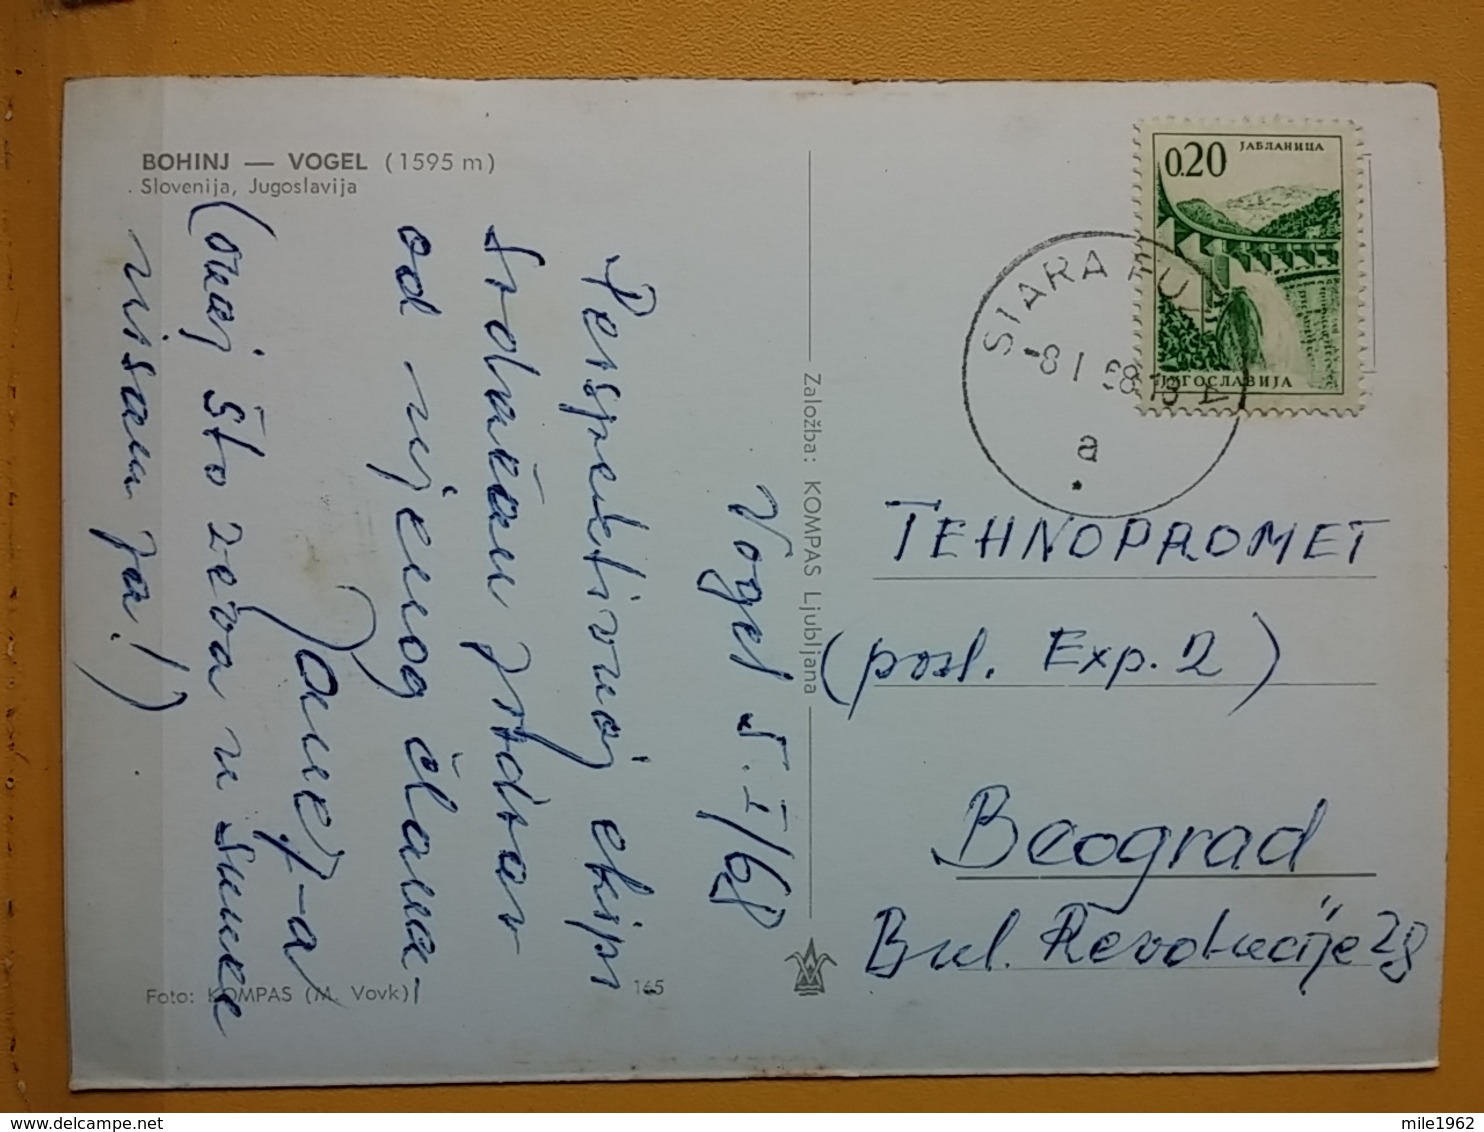 BOHINJ — VOGEL (1595 m)
Slovenija, Jugoslavija
Vogel 5.I/68
Perspektivnoj ekipi
Srdačan pozdrav
od njenog člana-
Janez-a
(onaj što zeva u sunce
nisam ja!)
Foto: KOMPAS (M. Vovk)
165
Založba: KOMPAS Ljubljana
0.20
ЈАБЛАНИЦА
ЈУГОСЛАВИЈА
STARA FU
-8 I 68-18
a
TEHNOPROMET
(posl. Exp. 2)
Beograd
Bul. Revolucije 28
mile1962